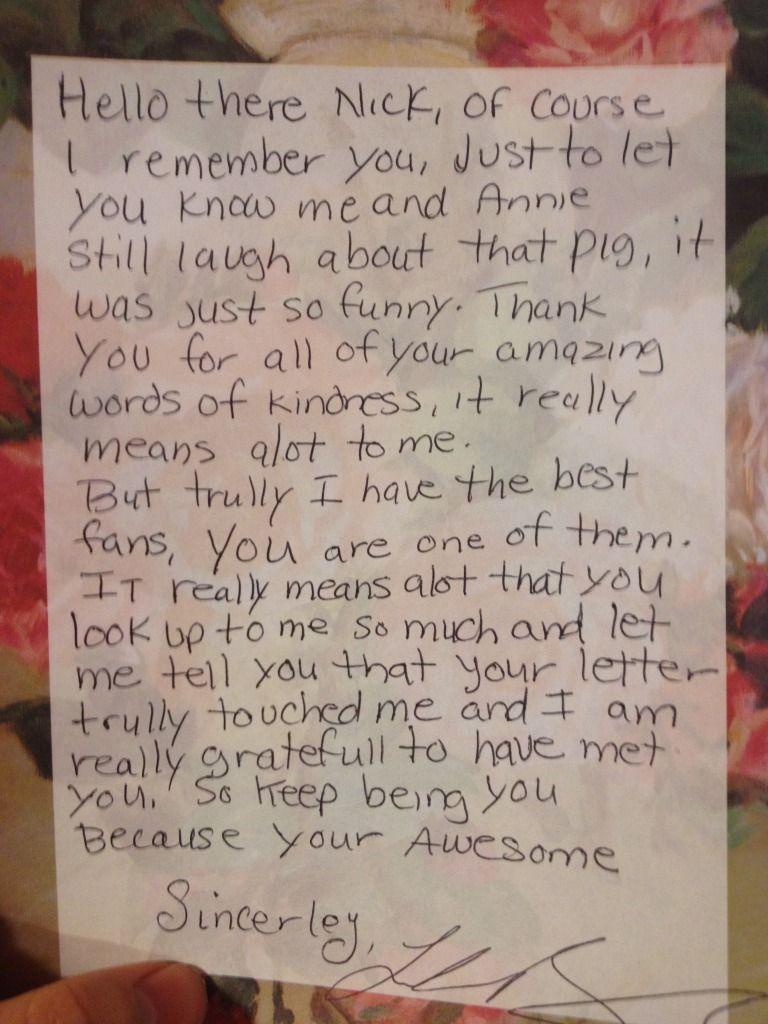 Hello there Nick, of course
I remember you, Just to let
you know me and Annie
still laugh about that pig, it
was just so funny. Thank
You for all of your amazing
words of kindness, it really
means alot to me.
But trully I have the best
fans, you are one of them.
IT really means alot that you
look up to me so much and let
me tell you that your letter
trully touched me and I am
really gratefull to have met
you. So keep being you
Because your Awesome
Sincerley,